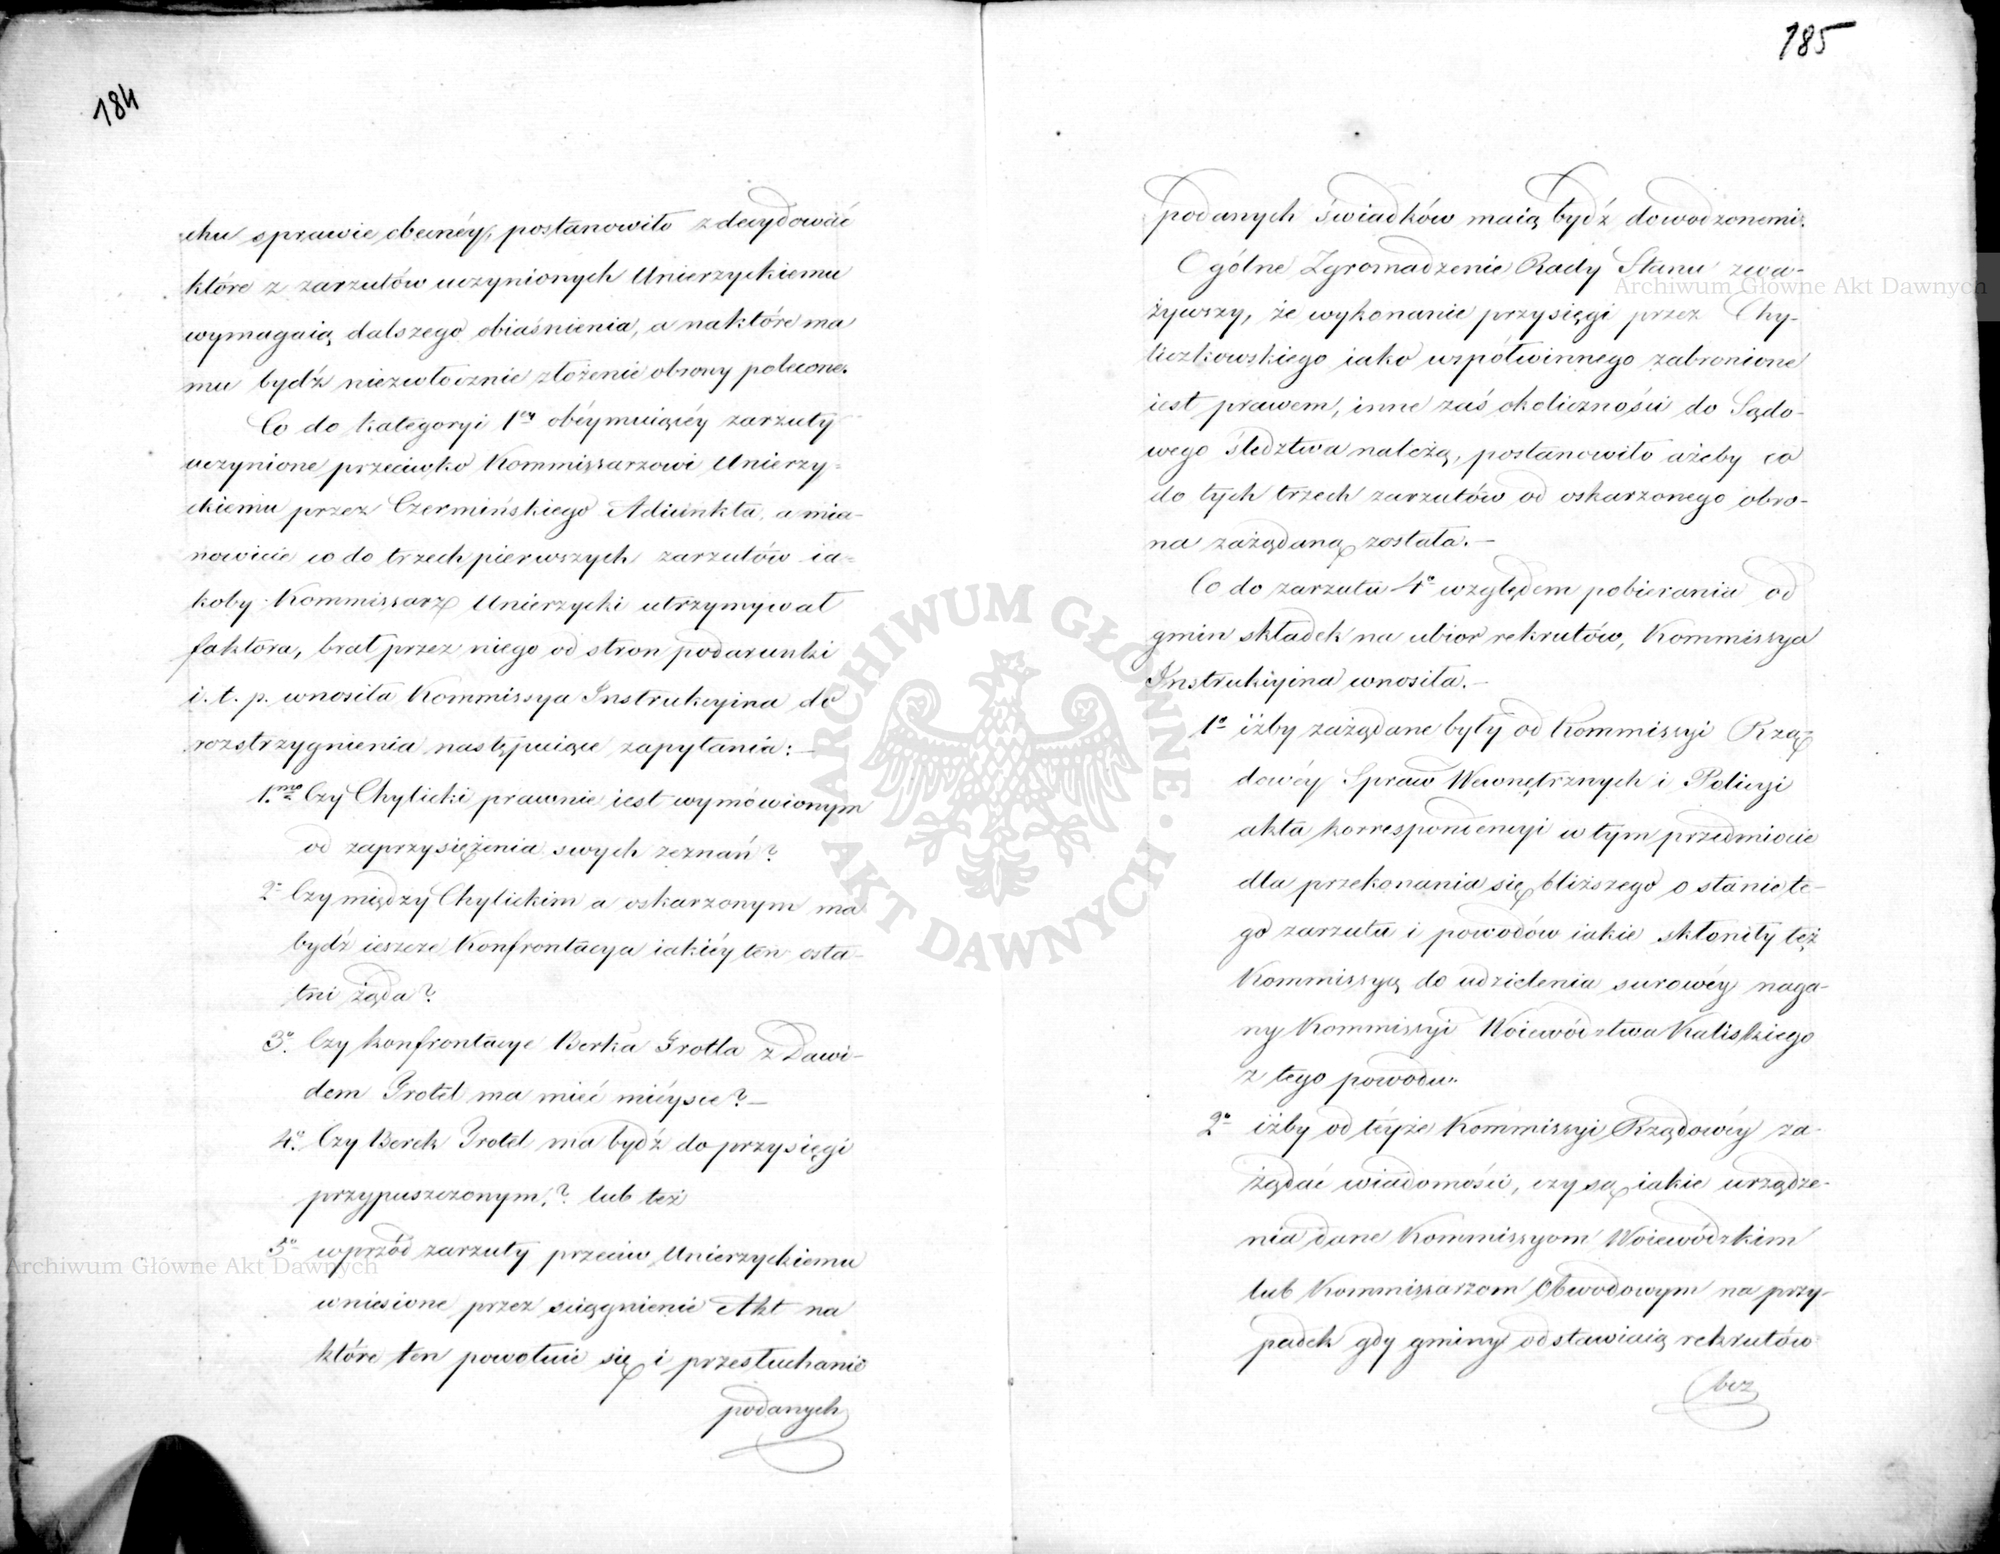 184
chu sprawie obecnéy, postanowiło zdecydować
które z zarzutów uczynionych Unierzyckiemu
wymagaią dalszego obiaśnienia, a na które ma
mu bydź niezwłocznie złożenie obrony polecone.
Co do kategoryi 1ey obéymuiącéy zarzuty
uczynione przeciwko Kommissarzowi Unierzy-
ckiemu przez Czermińskiego Adiunkta, a mia-
nowicie co do trzech pierwszych zarzutów ia-
koby Kommissarz Unierzycki utrzymywał
faktora, brał przez niego od stron podarunki
i. t. p. wnosiła Kommissya Instrukcyina do
rozstrzygnienia następuiące zapytania: —
1.mo Czy Chylicki prawnie iest wymówionym
od zaprzysiężenia swych zeznań?
2o Czy między Chylickim a oskarzonym ma
bydź ieszcze Konfrontacya iakiéy ten osta-
tni żąda?
3o. Czy konfrontacye Berka Grotla z Dawi-
dem Grotel ma mieć miéysce? —
4o. Czy Berek Grotel ma bydź do przysięgi
przypuszczonym,? lub też
5o wprzód zarzuty przeciw Unierzyckiemu
wniesione przez sciągnienie Akt na
które ten powołuie się i przesłuchanie
podanych
185
podanych świadków maią bydź dowodzonemi.
Ogólne Zgromadzenie Rady Stanu zwa-
żywszy, że wykonanie przysięgi przez Chy-
liczkowskiego iako współwinnego zabronione
iest prawem, inne zaś okoliczności do Sądo-
wego śledztwa należą, postanowiło ażeby co
do tych trzech zarzutów od oskarzonego obro-
na zażądaną została. —
Co do zarzutu 4o względem pobierania od
gmin składek na ubior rekrutów, Kommissya
Instrukcyina wnosiła. —
1o iżby zażądane były od Kommissyi Rzą-
dowéy Spraw Wewnętrznych i Policyi
akta korrespondencyi w tym przedmiocie
dla przekonania się bliższego o stanie te-
go zarzutu i powodów iakie skłoniły też
Kommissyą do udzielenia surowéy naga-
ny Kommissyi Woiewództwa Kaliskiego
z tego powodu.
2o iżby od téyże Kommissyi Rządowéy za-
żądać wiadomości, czy są iakie urządze-
nia dane Kommissyom Woiewódzkim
lub Kommissarzom Obwodowym na przy-
padek gdy gminy odstawiaią rekrutów
bez
Archiwum Główne Akt Dawnych
Archiwum Główne Akt Dawnych
ARCHIWUM GŁÓWNE
AKT DAWNYCH